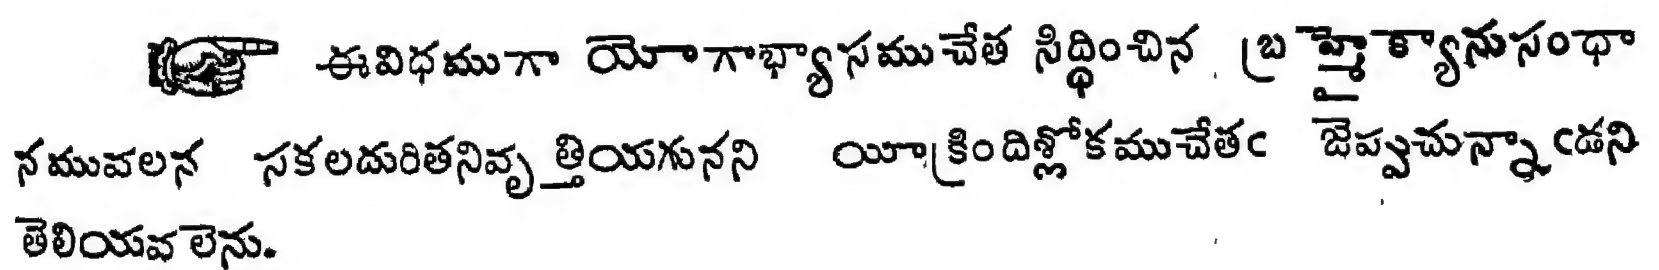 ☞ ఈవిధముగా యోగాభ్యాసముచేత సిద్ధించిన బ్రహ్మైక్యానుసంధా
నమువలన సకలదురితనివృత్తియగునని యీక్రిందిశ్లోకముచేతఁ జెప్పుచున్నాఁడని
తెలియవలెను.